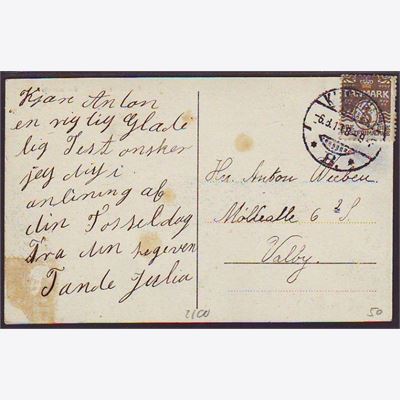 Kjære Anton
en rigtig Glade
lig Fest ønsker
jeg dig i
anlining af
din Fosseldag
Fra din hegeven
Tande Julia
DANMARK
3
6.8.1
B.
Hr. Anton
Möllealle 6 2 S
Valby.
2100
50